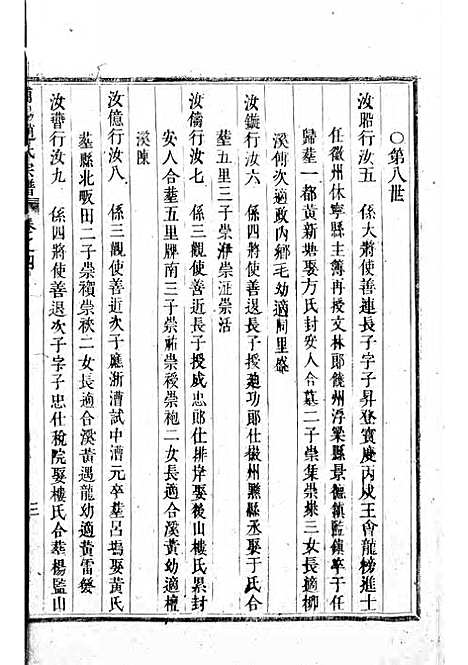 ○第八世
汝㬿行汝五 係大將使善連長子字子昇登寶慶丙戌王會龍榜進士
任徽州休寧縣主簿再授文林郎饒州浮梁縣景德鎮監鎮卒于任
歸塟一都黃新塘娶方氏封安人合墓二子崇集崇樂三女長適柳
溪傅次適政內鄉毛幼適同里盛
汝鏇行汝六 係四將使善退長子授廸功郎仕徽州黟縣丞娶于氏合
塟五里三子崇㳺崇沚崇活
汝儔行汝七 係三觀使善近長子授成忠郎仕排岸娶後山樓氏累封
安人合塟五里牌南三子崇祐崇稷崇袍二女長適合溪黃幼適檀
溪陳
汝億行汝八 係三觀使善近次子應浙漕試中漕元卒塟呂塢娶黃氏
塟縣北畈田二子崇積崇秧二女長適合溪黃遇龍幼適黃雷發
汝霅行汝九 係四將使善退次子字子忠仕稅院娶樓氏合塟楊監山
趙氏宗譜 卷之四
三